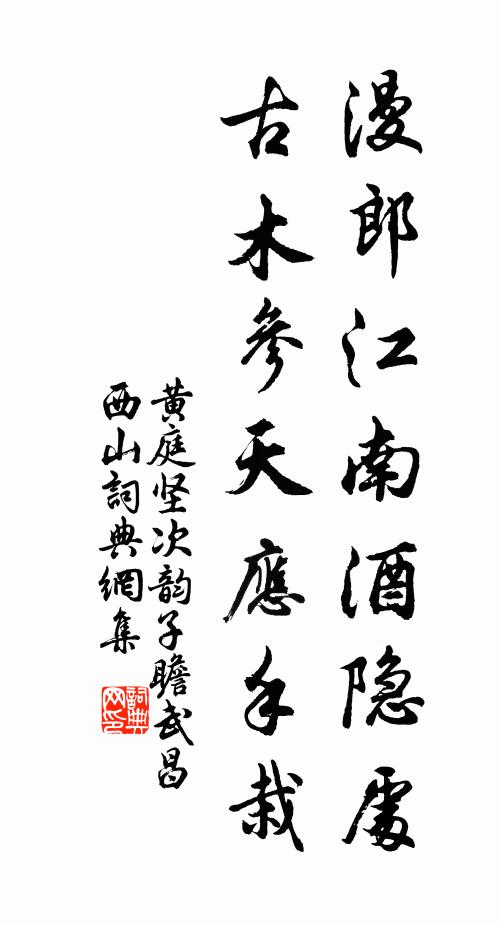 漫郎江南酒隐處
古木參天應手栽
黄庭坚次韵子瞻武昌
西山詞典網集
詞典
网印